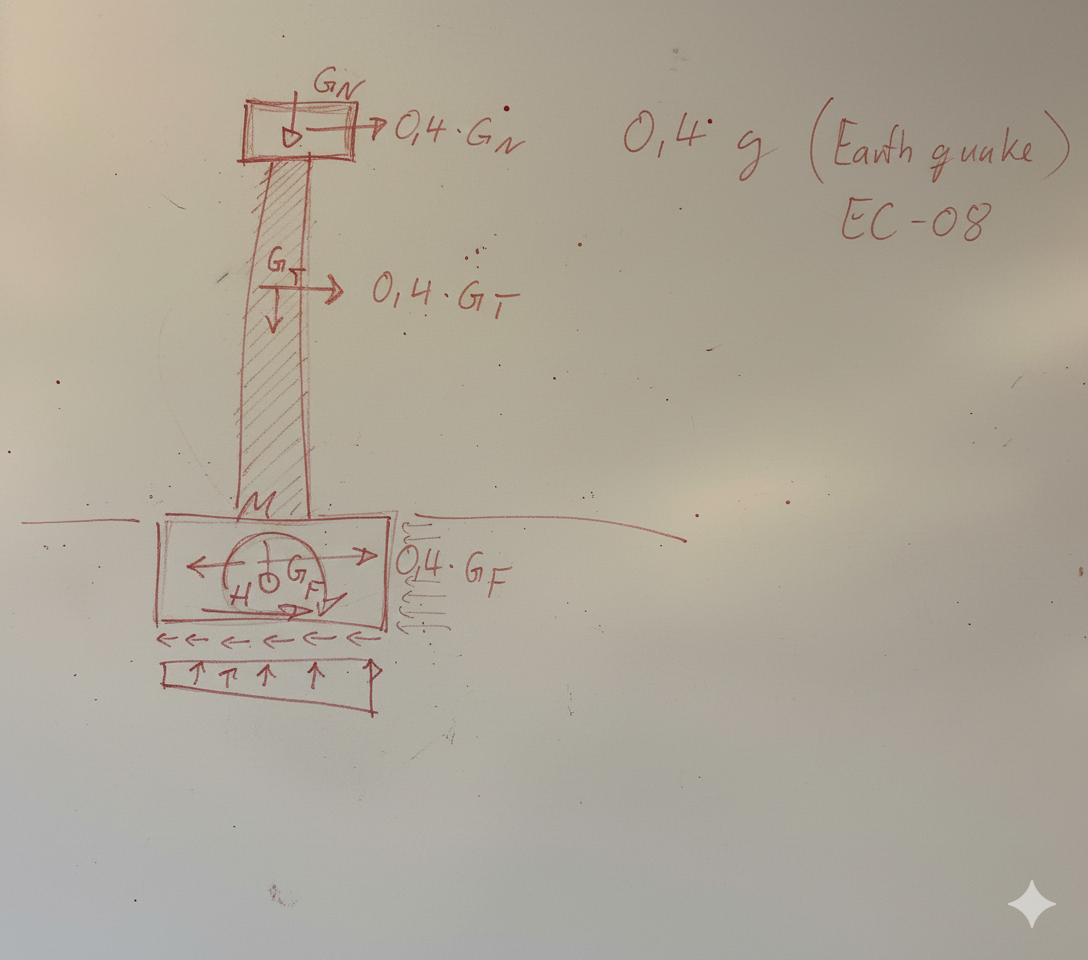 G_N
0,4 · G_N
0,4 g (Earth quake)
EC-08
G_T
0,4 · G_T
M
G_F
0,4 · G_F
H